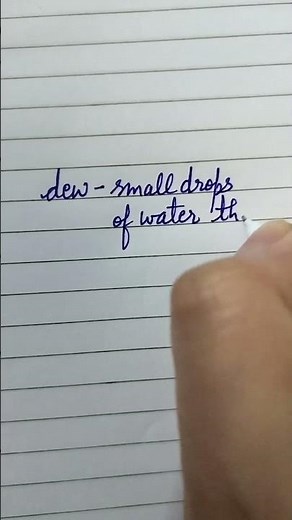 dew - small drops
of water th